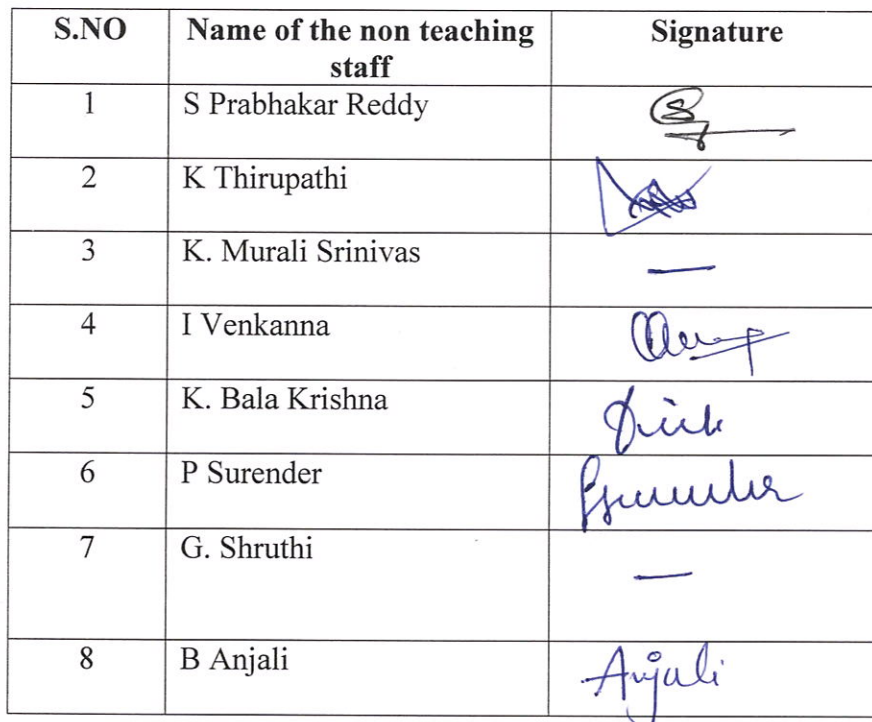 S.NO Name of the non teaching staff Signature
1 S Prabhakar Reddy
2 K Thirupathi
3 K. Murali Srinivas —
4 I Venkanna
5 K. Bala Krishna
6 P Surender PSurender
7 G. Shruthi —
8 B Anjali Anjali